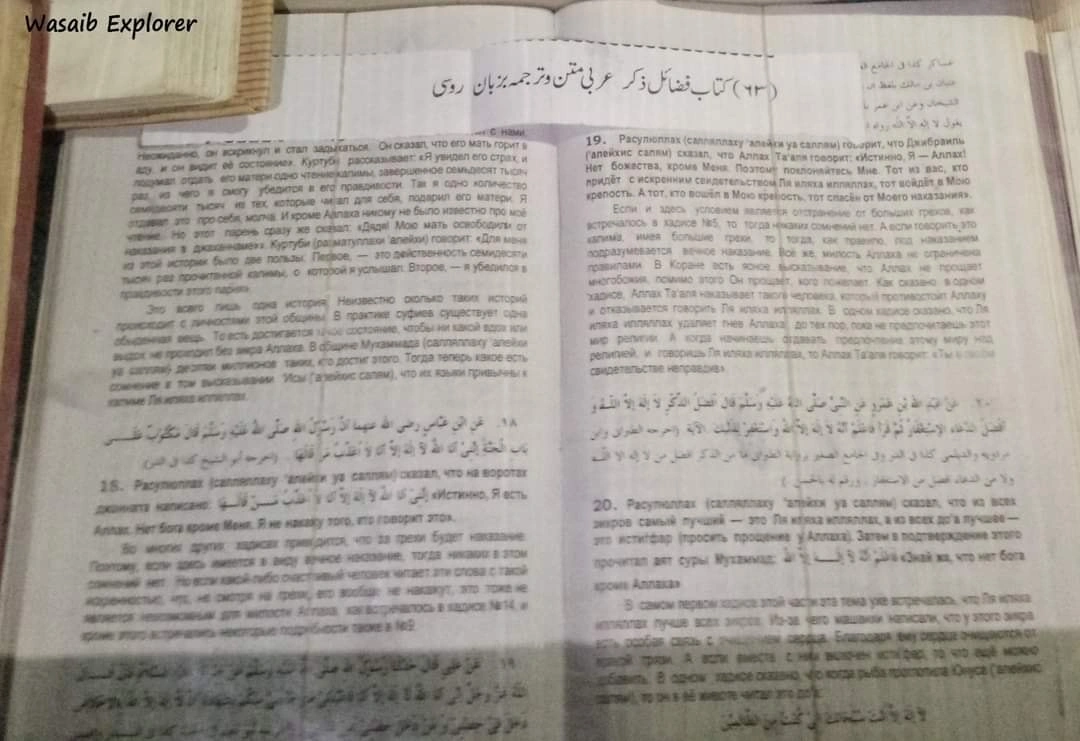 Wasaib Explorer
(٦٣) کتاب فضائل ذکر عربی متن و ترجمہ بزبان روسی
с нами.
Неожиданно, он вскрикнул и стал задыхаться. Он сказал, что его мать горит в
аду, и он видит её состояние». Куртуби рассказывает: «Я увидел его страх, и
подумал отдать его матери одно чтение калимы, завершенное семьдесят тысяч
раз, из чего я смогу убедится в его правдивости. Так я одно количество
семидесяти тысяч из тех, которые читал для себя, подарил его матери. Я
отдавал это про себя, молча. И кроме Аллаха никому не было известно про моё
чтение. Но этот парень сразу же сказал: «Дядя! Мою мать освободили от
наказания в джаханнаме»». Куртуби (рахматуллахи 'алейхи) говорит: «Для меня
из этой истории было две пользы. Первое, — это действенность семидесяти
тысяч раз прочитанной калимы, о которой я услышал. Второе, — я убедился в
правдивости этого парня».
Это всего лишь одна история. Неизвестно сколько таких историй
происходит с личностями этой общины. В практике суфиев существует одна
обыденная вещь. То есть достигается такое состояние, чтобы ни какой вдох или
выдох не проходил без зикра Аллаха. В общине Мухаммада (салляллаху 'алейхи
уа саллям) десятки миллионов таких, кто достиг этого. Тогда теперь какое есть
сомнение в том высказывании 'Исы ('алейхис салям), что их языки привычны к
калиме Ля иляха илляллах.
١٨. عن ابن عباس رضى الله عنهما أن رسول الله صلى الله عليه وسلم قال مكتوب على
باب الجنة إننى أنا الله لا إله إلا أنا لا أعذب من قالها. (اخرجه أبو الشيخ كذا فى الدر)
18. Расулюллах (салляллаху 'алейхи уа саллям) сказал, что на воротах
джанната написано: إننى أنا الله لا إله إلا أنا لا أعذب من قالها «Истинно, Я есть
Аллах. Нет бога кроме Меня. Я не накажу того, кто говорит это».
Во многих других хадисах приводится, что за грехи будет наказание.
Поэтому, если здесь имеется в виду вечное наказание, тогда никаких в этом
сомнений нет. Но если какой-либо счастливый человек читает эти слова с такой
искренностью, что, не смотря на грехи, его вообще не накажут, это тоже не
является невозможным для милости Аллаха, как встречалось в хадисе №14, и
кроме этого встречались некоторые подробности также в №9.
١٩. عن على قال
19. Расулюллах (салляллаху 'алейхи уа саллям) говорит, что Джибраиль
('алейхис салям) сказал, что Аллах Та'аля говорит: «Истинно, Я — Аллах!
Нет божества, кроме Меня. Поэтому поклоняйтесь Мне. Тот из вас, кто
придёт с искренним свидетельством Ля иляха илляллах, тот войдёт в Мою
крепость. А тот, кто вошёл в Мою крепость, тот спасён от Моего наказания».
Если и здесь условием является отстранение от больших грехов, как
встречалось в хадисе №5, то тогда никаких сомнений нет. А если говорить эту
калима, имея большие грехи, то тогда, как правило, под наказанием
подразумевается вечное наказание. Всё же, милость Аллаха не ограничена
правилами. В Коране есть ясное высказывание, что Аллах не прощает
многобожия, помимо этого Он прощает, кого пожелает. Как сказано в одном
хадисе, Аллах Та'аля наказывает такого человека, который противостоит Аллаху
и отказывается говорить Ля иляха илляллах. В одном хадисе сказано, что Ля
иляха илляллах удаляет гнев Аллаха, до тех пор, пока не предпочитаешь этот
мир религии. А когда начинаешь отдавать предпочтение этому миру над
религией, и говоришь Ля иляха илляллах, то Аллах Та'аля говорит: «Ты в своём
свидетельстве неправдив».
٢٠. عن عبد الله بن عمرو عن النبى صلى الله عليه وسلم قال أفضل الذكر لا إله إلا الله و
أفضل الدعاء الإستغفار ثم قرأ فاعلم أنه لا إله إلا الله واستغفر لذنبك الآية. (اخرجه الطبرانى وابن
مردويه والديلمى كذا فى الدر وفى الجامع الصغير برواية الطبرانى ما من الذكر افضل من لا إله الا الله
ولا من الدعاء افضل من الاستغفار، ورقم له بالحسن.)
20. Расулюллах (салляллаху 'алейхи уа саллям) сказал, что из всех
зикров самый лучший — это Ля иляха илляллах, а из всех до'а лучшее —
это истигфар (просить прощение у Аллаха). Затем в подтверждение этого
прочитал аят суры Мухаммад: فاعلم أنه لا إله إلا الله «Знай же, что нет бога
кроме Аллаха».
В самом первом хадисе этой части эта тема уже встречалась, что Ля иляха
илляллах лучше всех зикров. Из-за чего машаихи написали, что у этого зикра
есть особая связь с очищением сердца. Благодаря ему сердце очищаются от
всякой грязи. А если вместе с ним включен истигфар, то что ещё можно
добавить. В одном хадисе сказано, что когда рыба проглотила Юнуса ('алейхис
салям), то он в её животе читал это до'а:
لا إله إلا أنت سبحانك إنى كنت من الظالمين